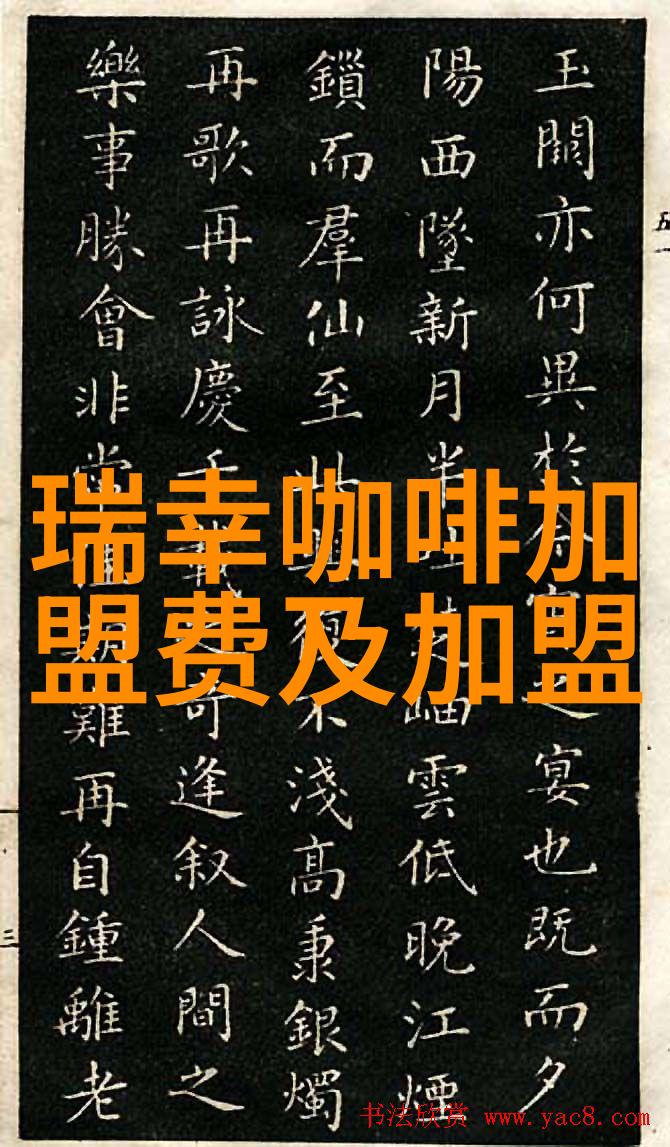 玉闕亦何異於今宵之宴也既而夕
陽西墜新月半吐芝岫雲低晚江煙
鎖而羣仙至此興復不淺高秉銀燭
再歌再詠慶千載之奇逢叙人間之
樂事勝會非常佳期難再自鍾離老
瑞幸咖啡加
盟费及加盟
五
三
书法欣赏 www.yac8.com